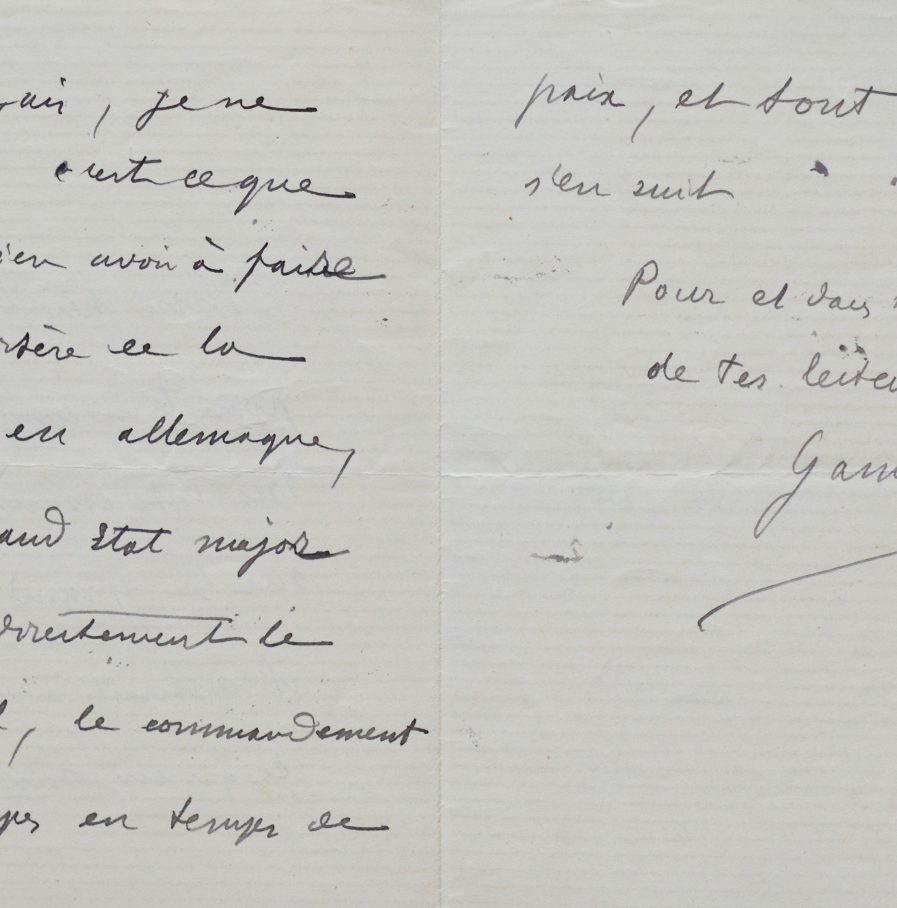 je ne
c'est ce que
avoir à faire
de la
en allemagne,
Etat major
directement le
, le commandement
en temps de
paix, et tout
s'en suit
Pour et dans
de tes
Gam